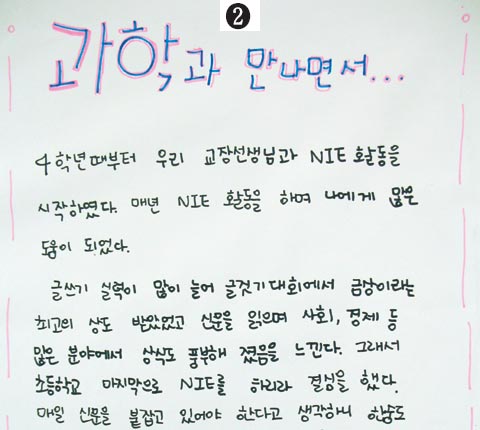 2
과학과 만나면서...
4학년때부터 우리 교장선생님과 NIE 활동을
시작하였다. 매년 NIE 활동을 하며 나에게 많은
도움이 되었다.
글쓰기 실력이 많이 늘어 글짓기대회에서 금상이라는
최고의 상도 받았었고 신문을 읽으며 사회, 경제 등
많은 분야에서 상식도 풍부해 졌음을 느낀다. 그래서
초등학교 마지막으로 NIE를 하리라 결심을 했다.
매일 신문을 붙잡고 있어야 한다고 생각하니